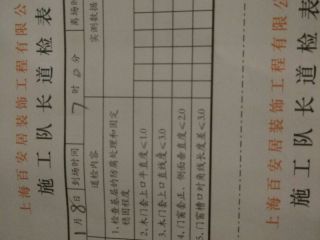 上海百安居装饰工程有限公
施工队长道检表
1月8日 到场时间 7时0分 离场时
道检内容 实测数据
1、检查基层的防腐处理和固定
稳固程度
2、木门套上口平直度≤1.0
3、木门套上口直线度≤3.0
4、门窗套正、侧面垂直度≤2.0
5、门窗槽口对角线长度≤3.0
上海百安居装饰工程有限公
施工队长道检表